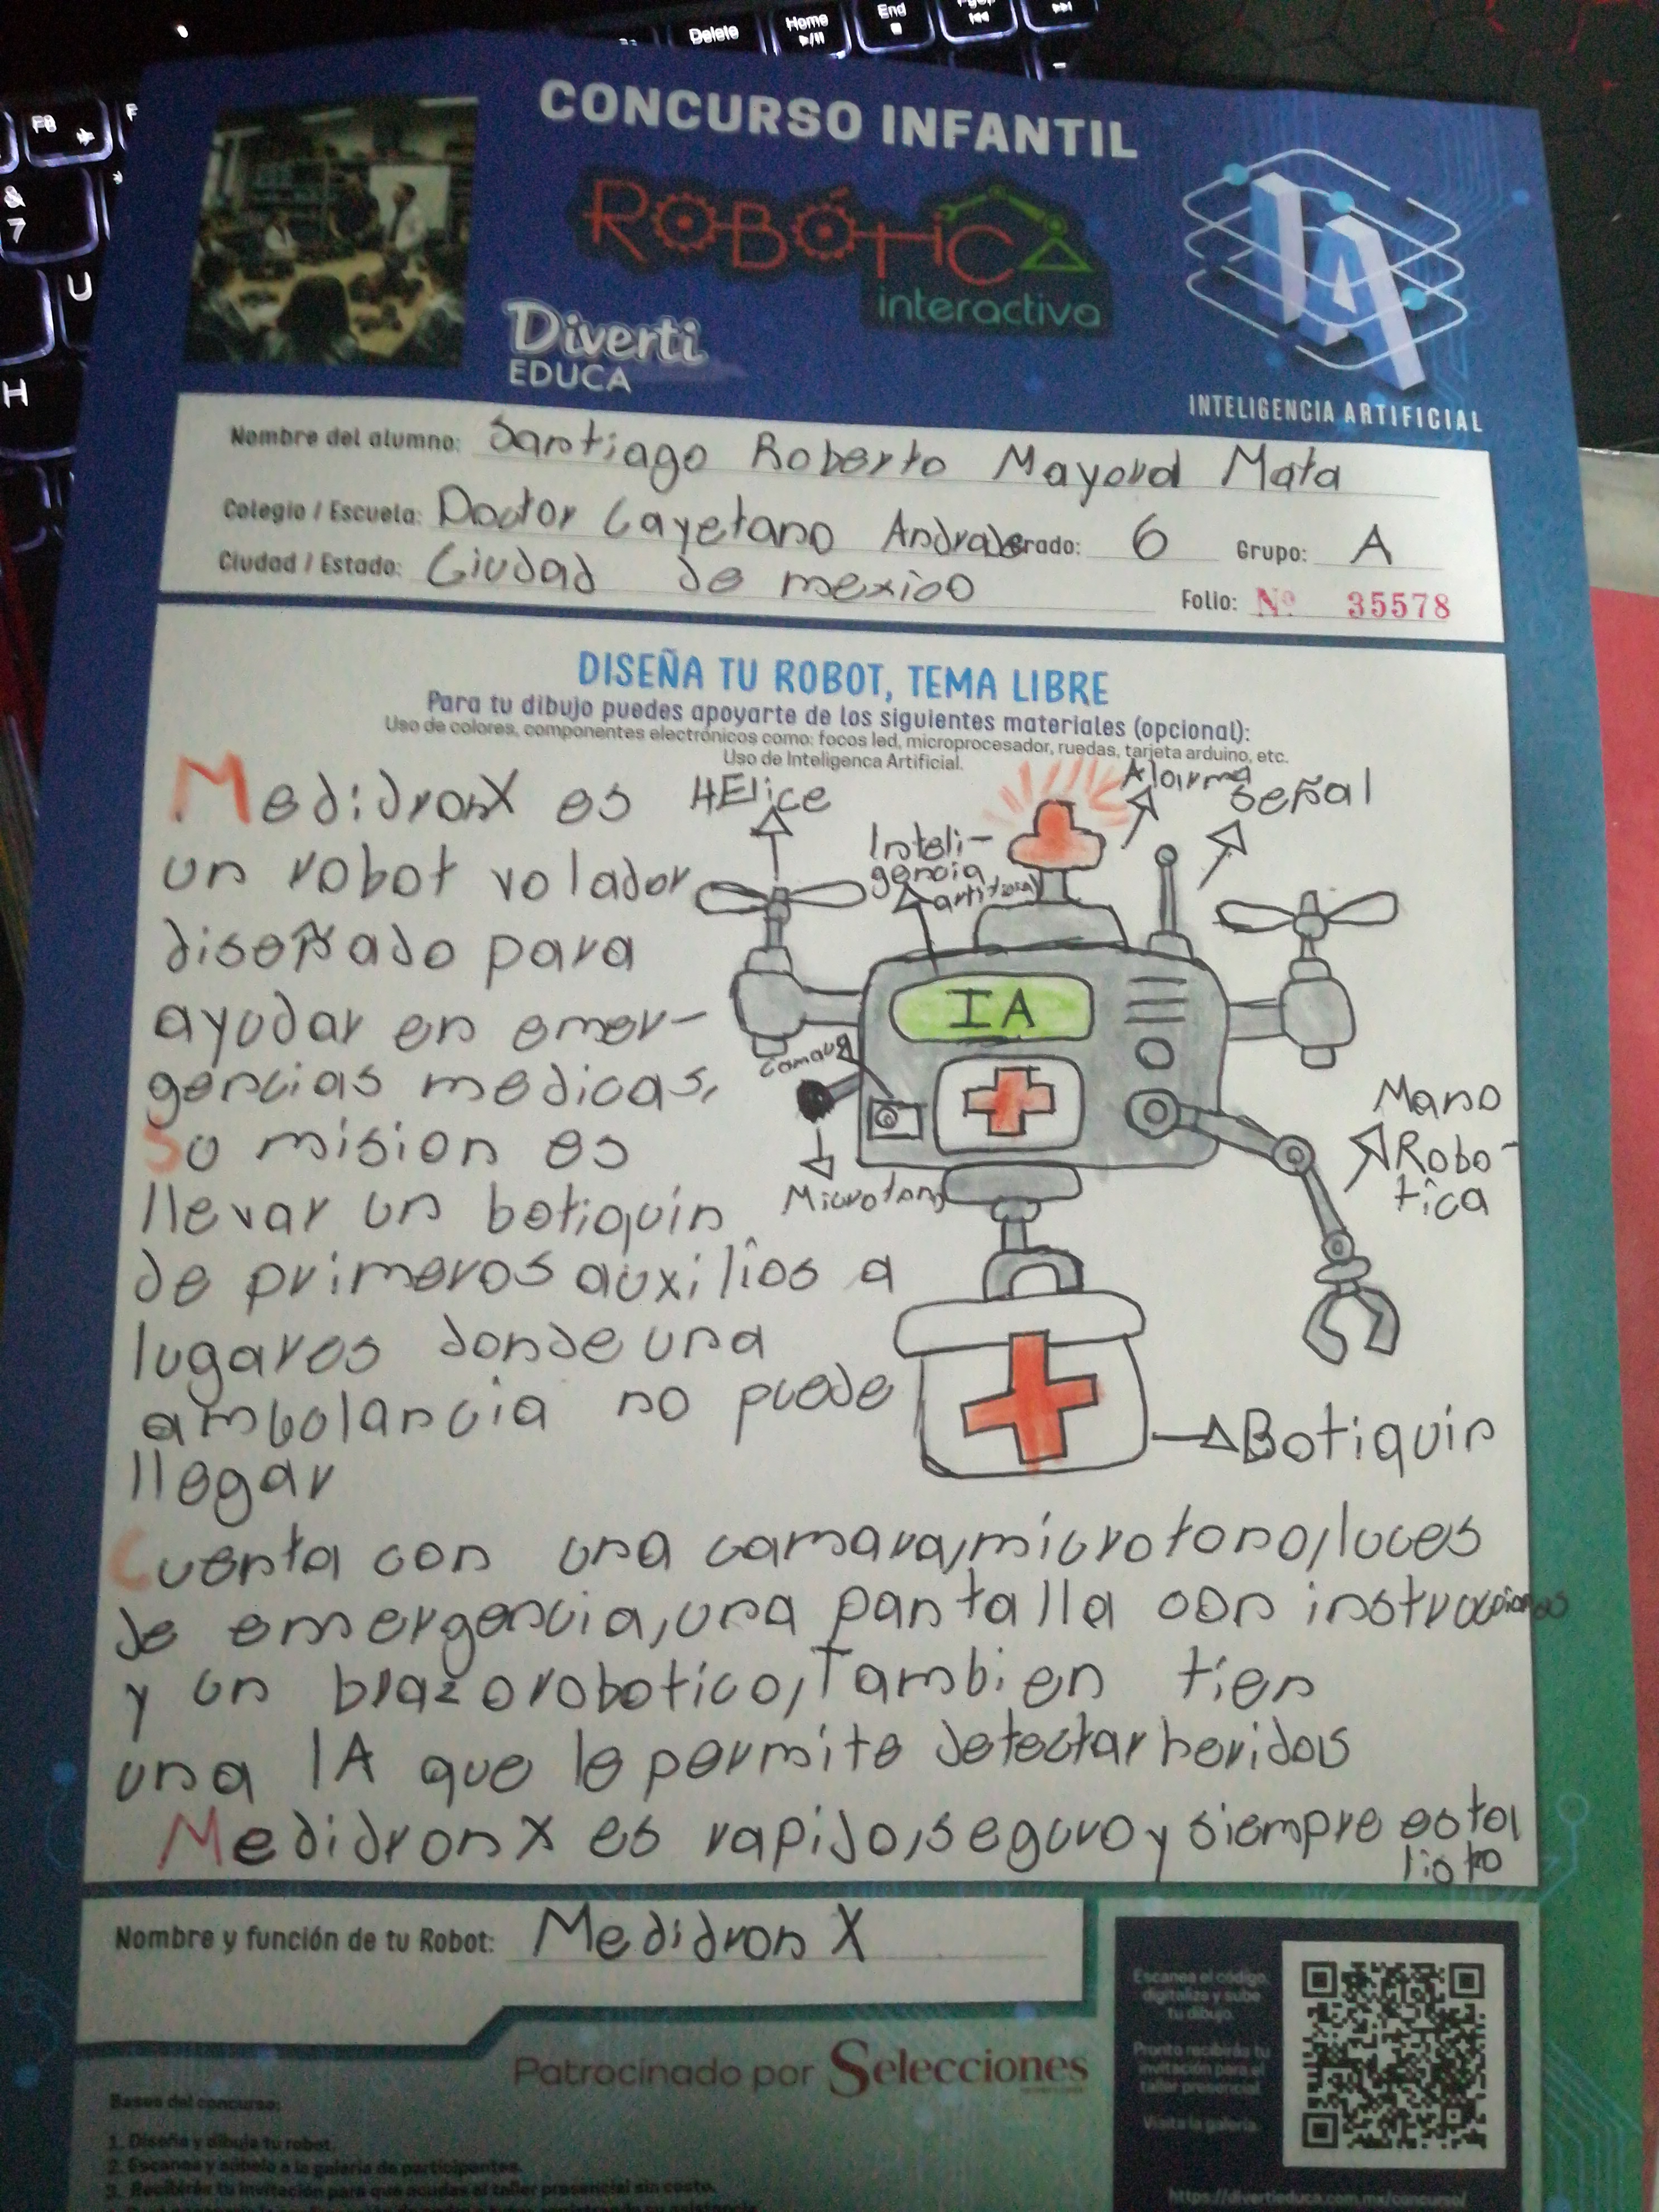 Delete
Home
End
F8
&
7
U
H
CONCURSO INFANTIL
ROBÓTICA
interactiva
Diverti
EDUCA
IA
INTELIGENCIA ARTIFICIAL
Nombre del alumno: Santiago Roberto Mayoral Mata
Colegio / Escuela: Doctor Cayetano Andrade Grado: 6 Grupo: A
Ciudad / Estado: Ciudad de mexico
Folio: Nº 35578
DISEÑA TU ROBOT, TEMA LIBRE
Para tu dibujo puedes apoyarte de los siguientes materiales (opcional):
Uso de colores, componentes electrónicos como: focos led, microprocesador, ruedas, tarjeta arduino, etc.
Uso de Inteligenca Artificial.
MedidronX es
un robot volador
diseñado para
ayudar en emer-
gencias medicas,
Su mision es
llevar un botiquín
de primeros auxilios a
lugares donde una
ambulancia no puede
llegar
HElice
Inteli-
gencia
artificial
Alarma
Señal
IA
camara
Microfono
Mano
Robo-
tica
Botiquin
Cuenta con una camara, microfono, luces
de emergencia, una pantalla con instrucciones
y un brazo robotico, Tambien tien
una IA que le permite detectar heridos
Medidron X es rapido, seguro y siempre esta
listo
Nombre y función de tu Robot: Medidron X
Escanea el código,
digitaliza y sube
tu dibujo.
Pronto recibirás tu
invitación para el
taller presencial
Visita la galería
Patrocinado por Selecciones
Bases del concurso:
1. Diseña y dibuja tu robot.
2. Escanea y súbelo a la galería de participantes.
3. Recibirás tu invitación para que acudas al taller presencial sin costo.
https://divertieduca.com.mx/concurso/